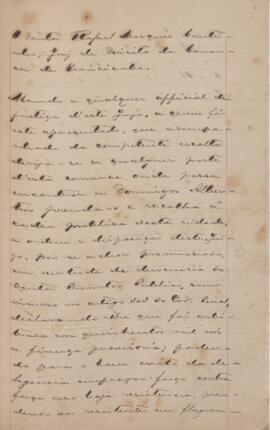 O Doutor Rafael Marques Couti-
nho, Juiz de Direito da Comar-
ca de
Mando a qualquer official de
justiça d'este juizo, a quem for
este apresentado, que acompa-
nhado da competente escolta
dirija-se a qualquer parte
d'esta comarca onde possa
encontrar a Domingos
prenda-o e recolha á
cadea publica desta cidade,
a ordem e disposição deste jui-
zo, por se achar pronunciado,
em virtude de denuncia do
Doutor Promotor Publico, como
incurso no artigo 303 do Cod. Penal,
declarando-lhe que foi arbi-
trada em quinhentos mil reis
a fiança provisoria; poden-
do para o bom exito da de-
ligencia empregar força contra
força caso haja resistencia, pren-
dendo os resistentes em flagran-